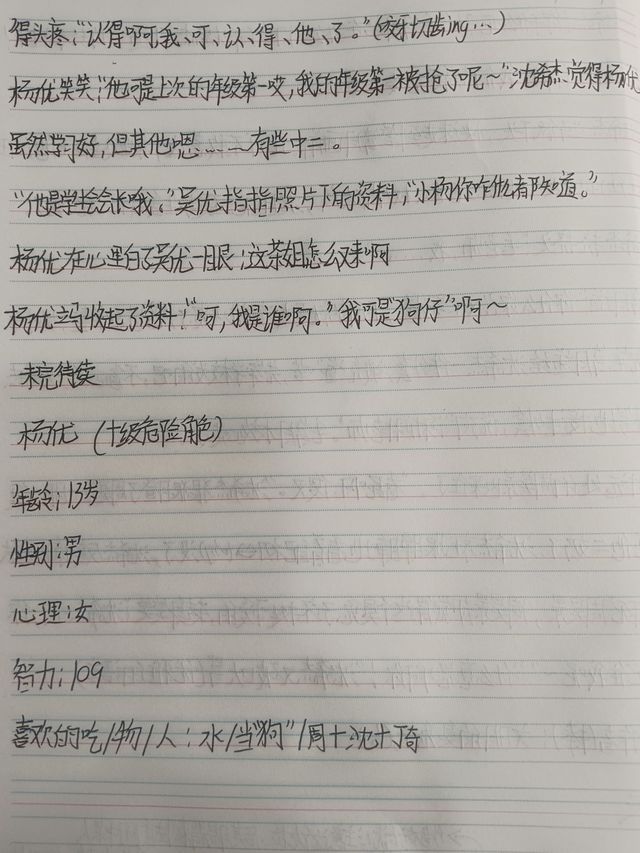 得头疼；“认得啊，我、可、认、得、他、了。”(咬牙切齿ing…)
杨优笑笑；“他可是上次的年级第一哎，我的年级第一被抢了呢～”沈希杰觉得杨优
虽然学习好，但其他嗯……有些中二。
“他是学生会会长哦，”吴优指指照片下的资料，“小杨你咋啥都知道。”
杨优在心里白了吴优一眼；这茶姐怎么又来啊
杨优立马收起了资料！“呵，我是谁啊。”我可是“狗仔”啊～
未完待续
杨优 (十级危险角色)
年龄；13岁
性别；男
心理；女
智力；109
喜欢的吃/物/人：水/当“狗”/周十沈十丁奇